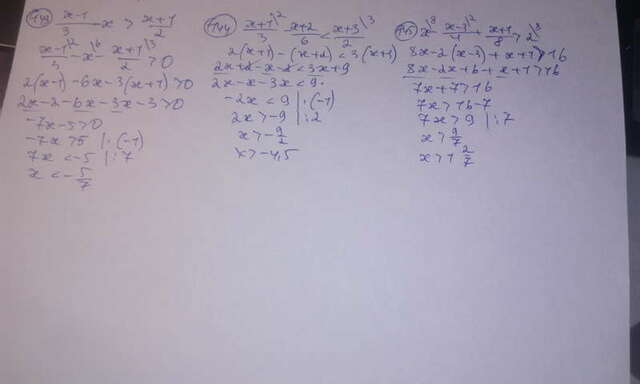 743 x-1/3 - x > x+1/2
x-1\2/3 - x\6 - x+1\3/2 > 0
2(x-1) - 6x - 3(x+1) > 0
2x - 2 - 6x - 3x - 3 > 0
-7x - 5 > 0
-7x > 5 | : (-1)
7x < -5 | : 7
x < - 5/7
744 x+1\2/3 - x+2/6 < x+3\3/2
2(x+1) - (x+2) < 3(x+3)
2x+2 - x - 2 < 3x+9
2x - x - 3x < 9
-2x < 9 | : (-1)
2x > -9 | : 2
x > - 9/2
x > -4,5
745 x\8 - x-3\2/4 + x+1/8 > 2\8
8x - 2(x-3) + x+1 > 16
8x - 2x + 6 + x + 1 > 16
7x + 7 > 16
7x > 16 - 7
7x > 9 | : 7
x > 9/7
x > 1 2/7